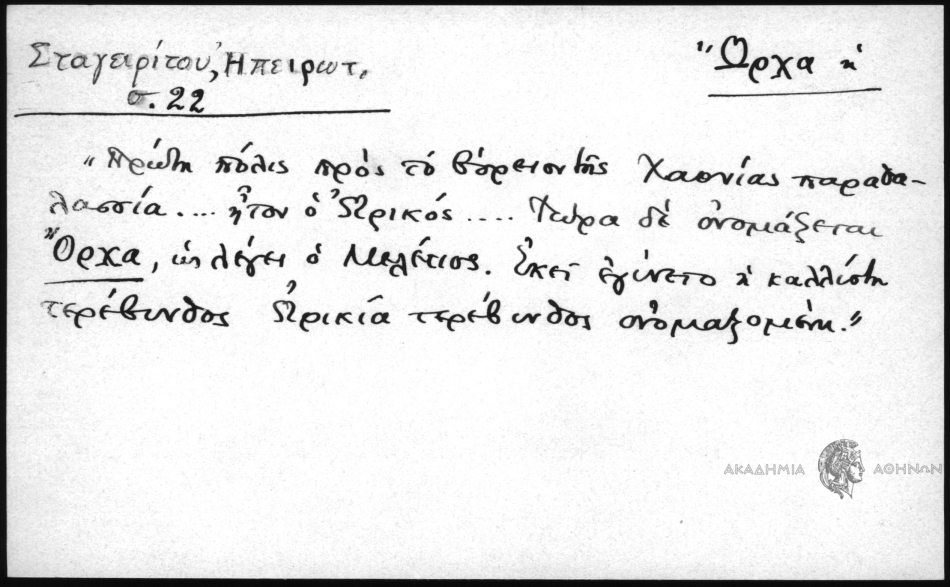 Σταγειρίτου, Ηπειρωτ.
σ. 22
Ὤρχα ἡ
"Πρώτη πόλις πρὸς τὸ βόρειον τῆς Χαονίας παραθα-
λασσία .... ἦτον ὁ Ὠρικός .... Τώρα δὲ ὀνομάζεται
Ὄρχα, ὡς λέγει ὁ Μελέτιος. Ἐκεῖ ἐγίνετο ἡ καλλίστη
τερέβινθος Ὠρικία τερέβινθος ὀνομαζομένη."
ΑΚΑΔΗΜΙΑ ΑΘΗΝΩΝ